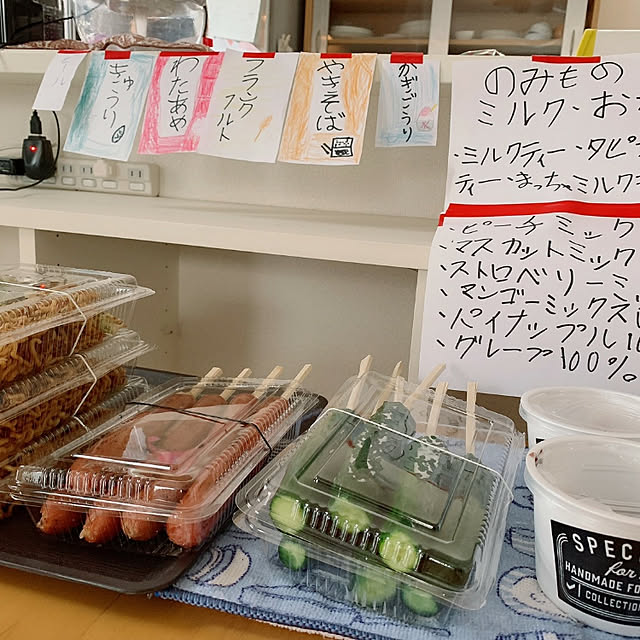 きゅうり
わたあめ
フランクフルト
やきそば
かきごうり
のみもの
ミルク・お
・ミルクティー・タピ
ティー・まっちゃミルク
・ピーチミック
・マスカットミック
・ストロベリーミ
・マンゴーミックス
・パイナップル
・グレープ100%
SPEC
for
HANDMADE FO
COLLECTION